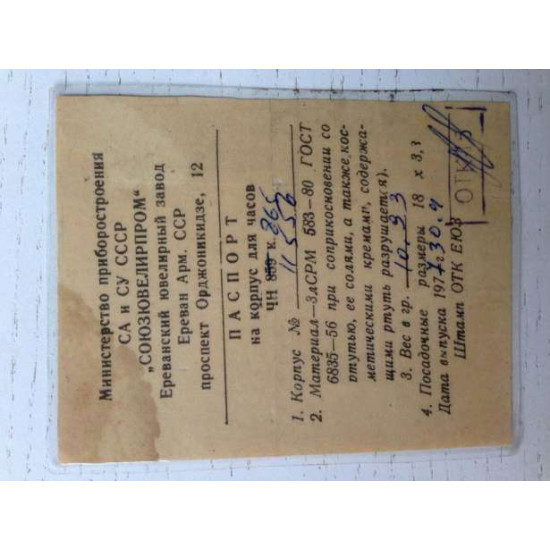 Министерство приборостроения
СА и СУ СССР
„СОЮЗЮВЕЛИРПРОМ"
Ереванский ювелирный завод
Ереван Арм. ССР
проспект Орджоникидзе, 12
ПАСПОРТ
на корпус для часов
ЧН к. 865
1. Корпус № 11556
2. Материал—ЗлСРМ 583—80 ГОСТ
6835—56 при соприкосновении со
ртутью, ее солями, а также „кос-
метическими кремами", содержа-
щими ртуть разрушает(я).
3. Вес в гр. 10.93
4. Посадочные размеры 18 х 3,3
Дата выпуска 197 г. 30.9
Штамп ОТК ЕЮЗ
ОТК